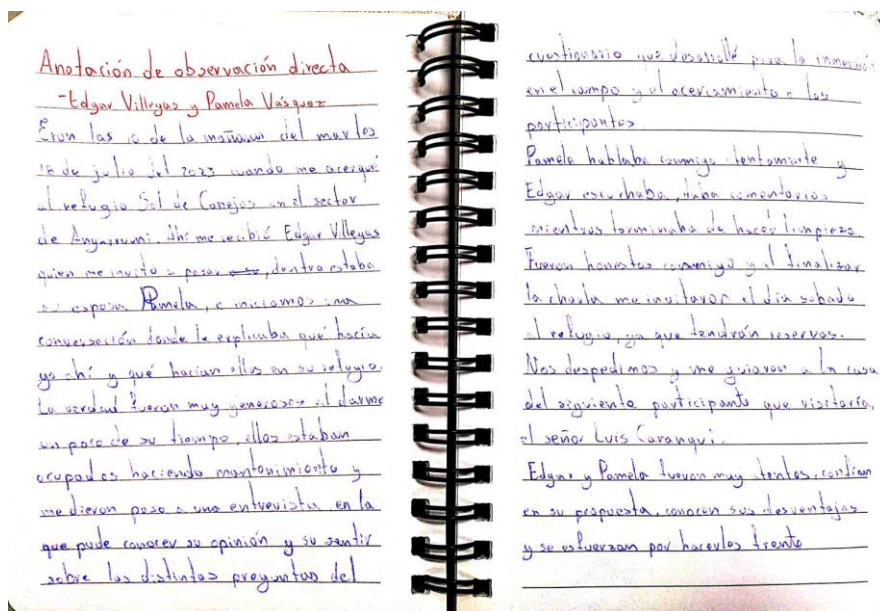 Anotación de observación directa
-Edgar Villegas y Pamela Vásquez
Eran las 10 de la mañana del martes
18 de julio del 2023 cuando me acerqué
al refugio Sol de Conejos en el sector
de Angas. Ahí me recibió Edgar Villegas
quien me invito a pasar, dentro estaba
su esposa Pamela, e iniciamos una
conversación donde le explicaba qué hacía
yo ahí y qué hacían ellos en su refugio.
La verdad fueron muy generosos al darme
un poco de su tiempo, ellos estaban
ocupados haciendo mantenimiento y
me dieron paso a una entrevista en la
que pude conocer su opinión y su sentir
sobre las distintas preguntas del
cuestionario que desarrollé para la inmersión
en el campo y el acercamiento a los
participantes
Pamela hablaba conmigo atentamente y
Edgar escuchaba, daba comentarios
mientras terminaba de hacer limpieza.
Fueron honestos conmigo y al finalizar
la charla me invitaron el día sabado
al refugio, ya que tendrán reservas.
Nos despedimos y me guiaron a la casa
del siguiente participante que visitaría,
el señor Luis Caranqui.
Edgar y Pamela fueron muy atentos, confían
en su propuesta, conocen sus desventajas
y se esfuerzan por hacerles frente